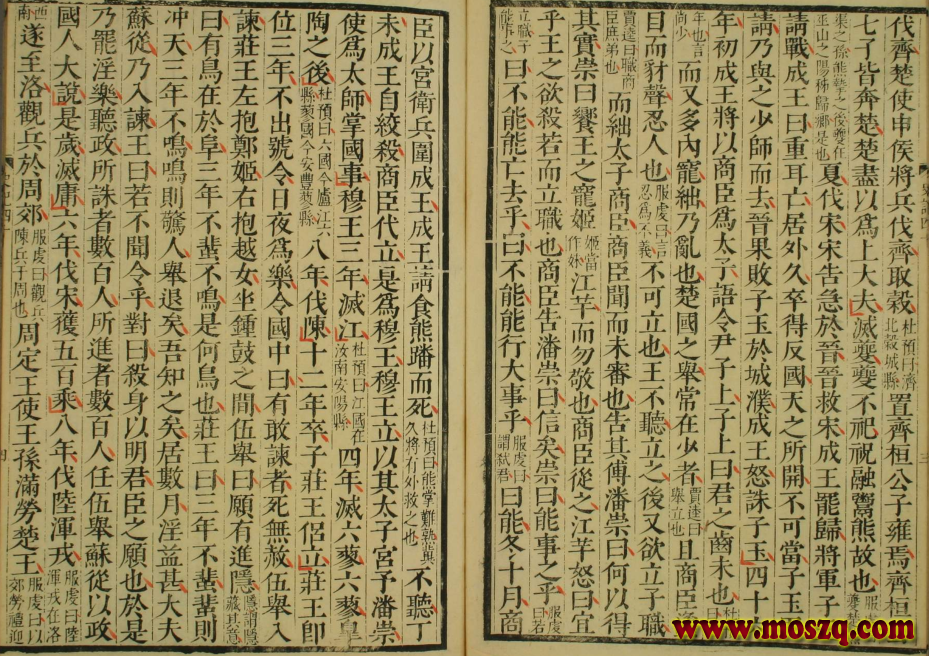 伐齊楚使申侯將兵伐齊取穀杜預曰濟北穀城縣置齊桓公子雍焉齊桓
七子皆奔楚楚盡以爲上大夫滅夔夔不祀祝融鬻熊故也服
渠之孫熊摯之後夔在巫山之陽秭歸鄉是也夏伐宋宋告急於晉晉救宋成王罷歸將軍子
請戰成王曰重耳亡居外久卒得反國天之所開不可當子玉
請乃與之少師而去晉果敗子玉於城濮成王怒誅子玉四十
年初成王將以商臣爲太子語令尹子上子上曰君之齒未也杜曰
年也言尚少而又多內寵絀乃亂也楚國之舉常在少者賈逵曰舉立也且商臣
目而豺聲忍人也服虔曰言忍爲不義不可立也王不聽立之後又欲立子職
賈逵曰職商臣庶弟也而絀太子商臣商臣聞而未審也告其傅潘崇曰何以得
其實崇曰饗王之寵姬姬當作妹江羋而勿敬也商臣從之江羋怒曰宜
乎王之欲殺若而立職也商臣告潘崇曰信矣崇曰能事之乎服虔曰若
立職子能事之曰不能能亡去乎曰不能能行大事乎服虔曰謂弑君曰能冬十月商
臣以宮衛兵圍成王成王請食熊蹯而死杜預曰熊掌難熟冀久將有外救之也不聽丁
未成王自絞殺商臣代立是爲穆王穆王立以其太子宮予潘崇
使爲太師掌國事穆王三年滅江杜預曰江國在汝南安陽縣四年滅六蓼六蓼皐
陶之後杜預曰六國今廬江六縣蓼國今安豐蓼縣八年伐陳十二年卒子莊王侶立莊王即
位三年不出號令日夜爲樂令國中曰有敢諫者死無赦伍舉入
諫莊王左抱鄭姬右抱越女坐鍾鼓之閒伍舉曰願有進隱隱謂隱藏其意
曰有鳥在於阜三年不蜚不鳴是何鳥也莊王曰三年不蜚蜚則
冲天三年不鳴鳴則驚人舉退矣吾知之矣居數月淫益甚大夫
蘇從乃入諫王曰若不聞令乎對曰殺身以明君臣之願也於是
乃罷淫樂聽政所誅者數百人所進者數百人任伍舉蘇從以政
國人大說是歲滅庸六年伐宋獲五百乘八年伐陸渾戎服虔曰陸渾戎在洛
西南遂至洛觀兵於周郊服虔曰觀兵陳兵于周也周定王使王孫滿勞楚王服虔曰以郊勞禮迎
www.moszq.com